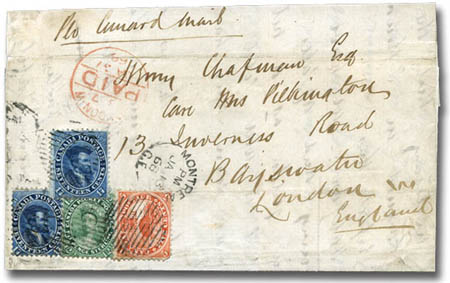 Per Cunard Mail
Henry Chapman Esq
Care Mrs Pilkington
13 Inverness Road
Bayswater
London W
England
PAID
LONDON
MONTRE
PM
JA
68
CANADA POSTAGE
CANADA POSTAGE